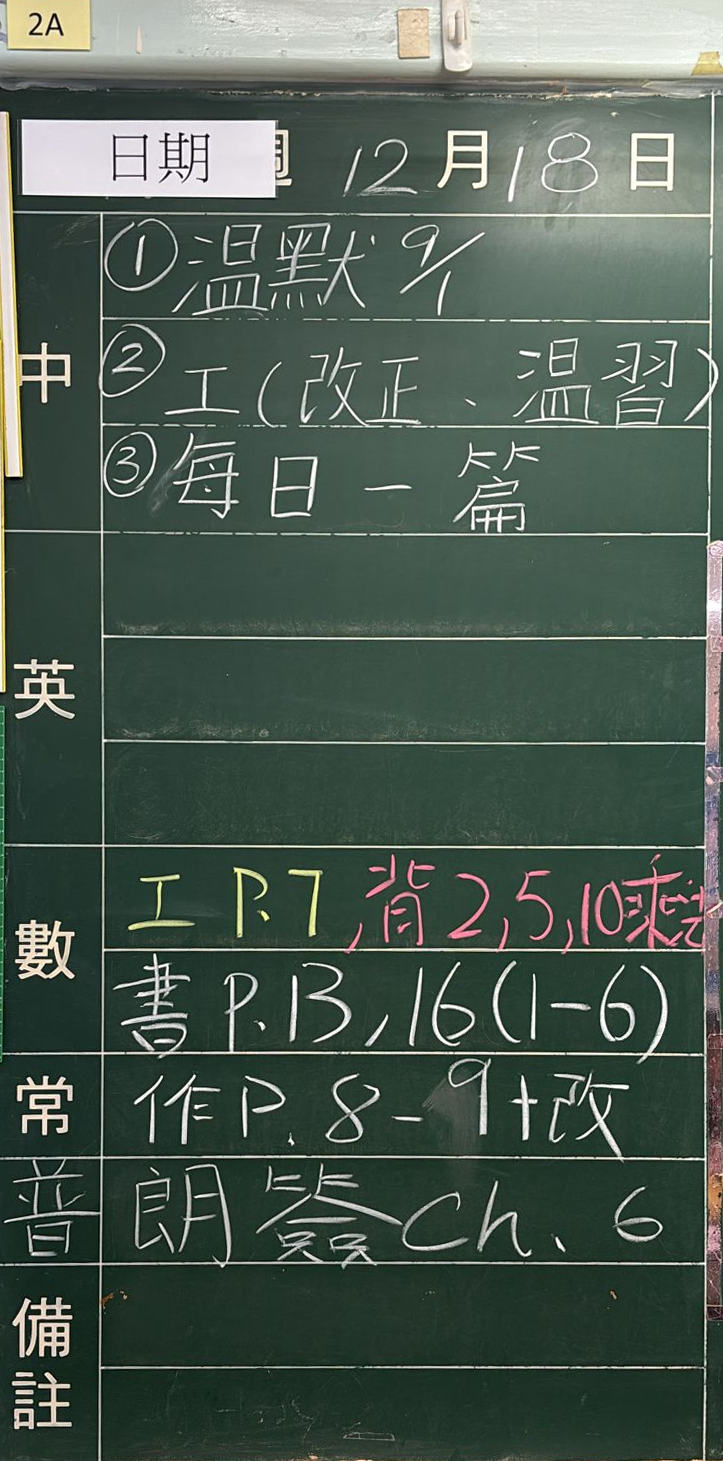 2A
日期 週 12月18日
中
①温默 9/1
②工(改正、温習)
③每日一篇
英
數
工 P.7,背2,5,10乘法
書 P.13,16(1-6)
常 作P.8-9+改
普 朗簽Ch.6
備註